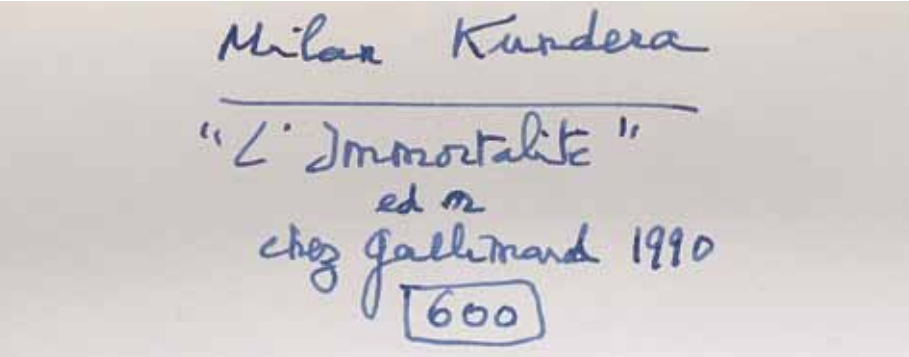 Milan Kundera
"L'Immortalite"
ed m
chez Gallimard 1990
600